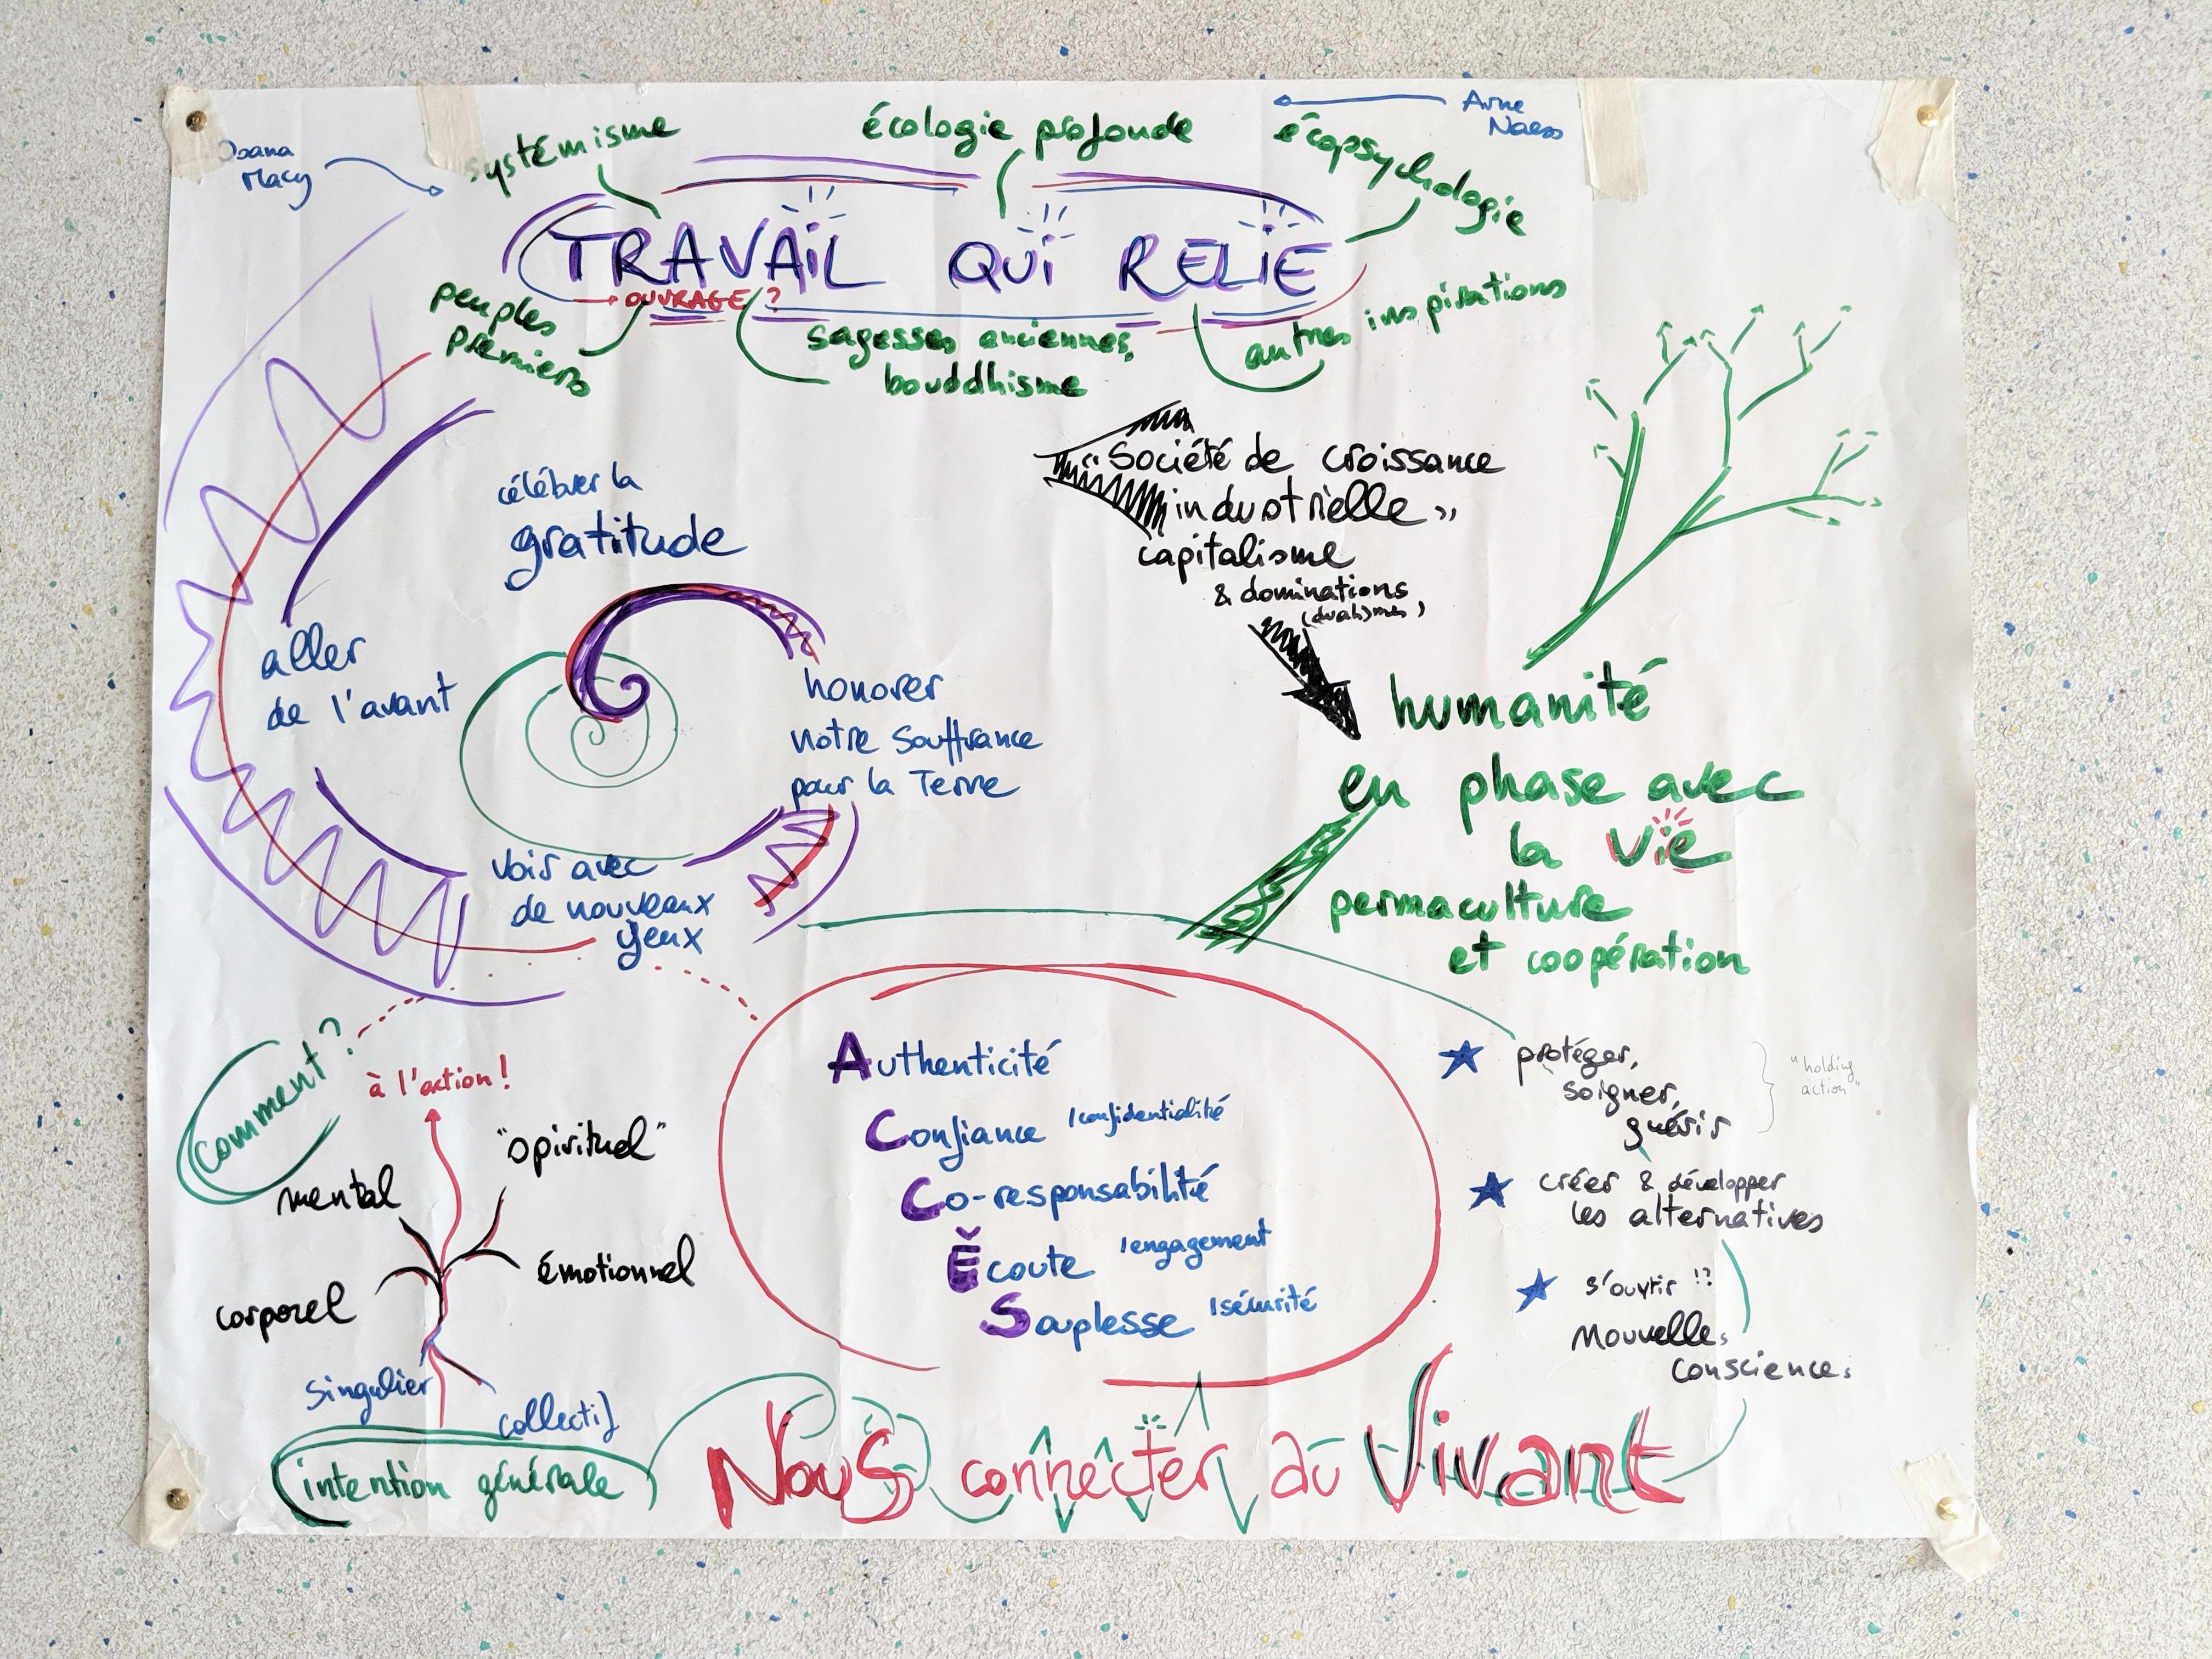 Joana
Macy
systémisme
écologie profonde
écopsychologie
Arne
Naess
TRAVAIL QUI RELIE
OUVRAGE ?
peuples
premiers
sagesses anciennes,
bouddhisme
autres inspirations
célébrer la
gratitude
honorer
notre souffrance
pour la Terre
voir avec
de nouveaux
yeux
aller
de l'avant
"Société de croissance
industrielle"
capitalisme
& dominations
humanité
en phase avec
la Vie
permaculture
et coopération
comment ?
à l'action !
mental
"spirituel"
corporel
émotionnel
singulier
collectif
intention générale
Authenticité
Confiance /confidentialité
Co-responsabilité
Ecoute /engagement
Souplesse /sécurité
protéger,
soigner,
guérir
"holding
action"
créer & développer
les alternatives
s'ouvrir !?
Nouvelles
consciences
Nous connecter au Vivant